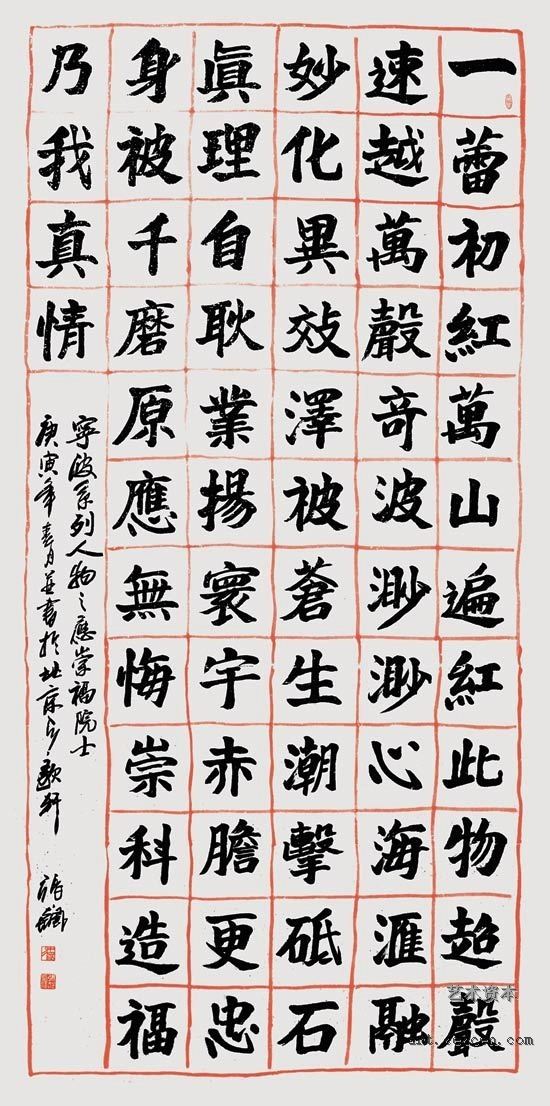 一蕾初紅萬山遍紅此物超聲
速越萬聲奇波渺渺心海滙融
妙化異效澤被蒼生潮擊砥石
眞理自耿業揚寰宇赤膽更忠
身被千磨原應無悔崇科造福
乃我真情
寧波系列人物之應崇福院士
庚寅年春月並書於北京
艺术资本
art.cexcen.com